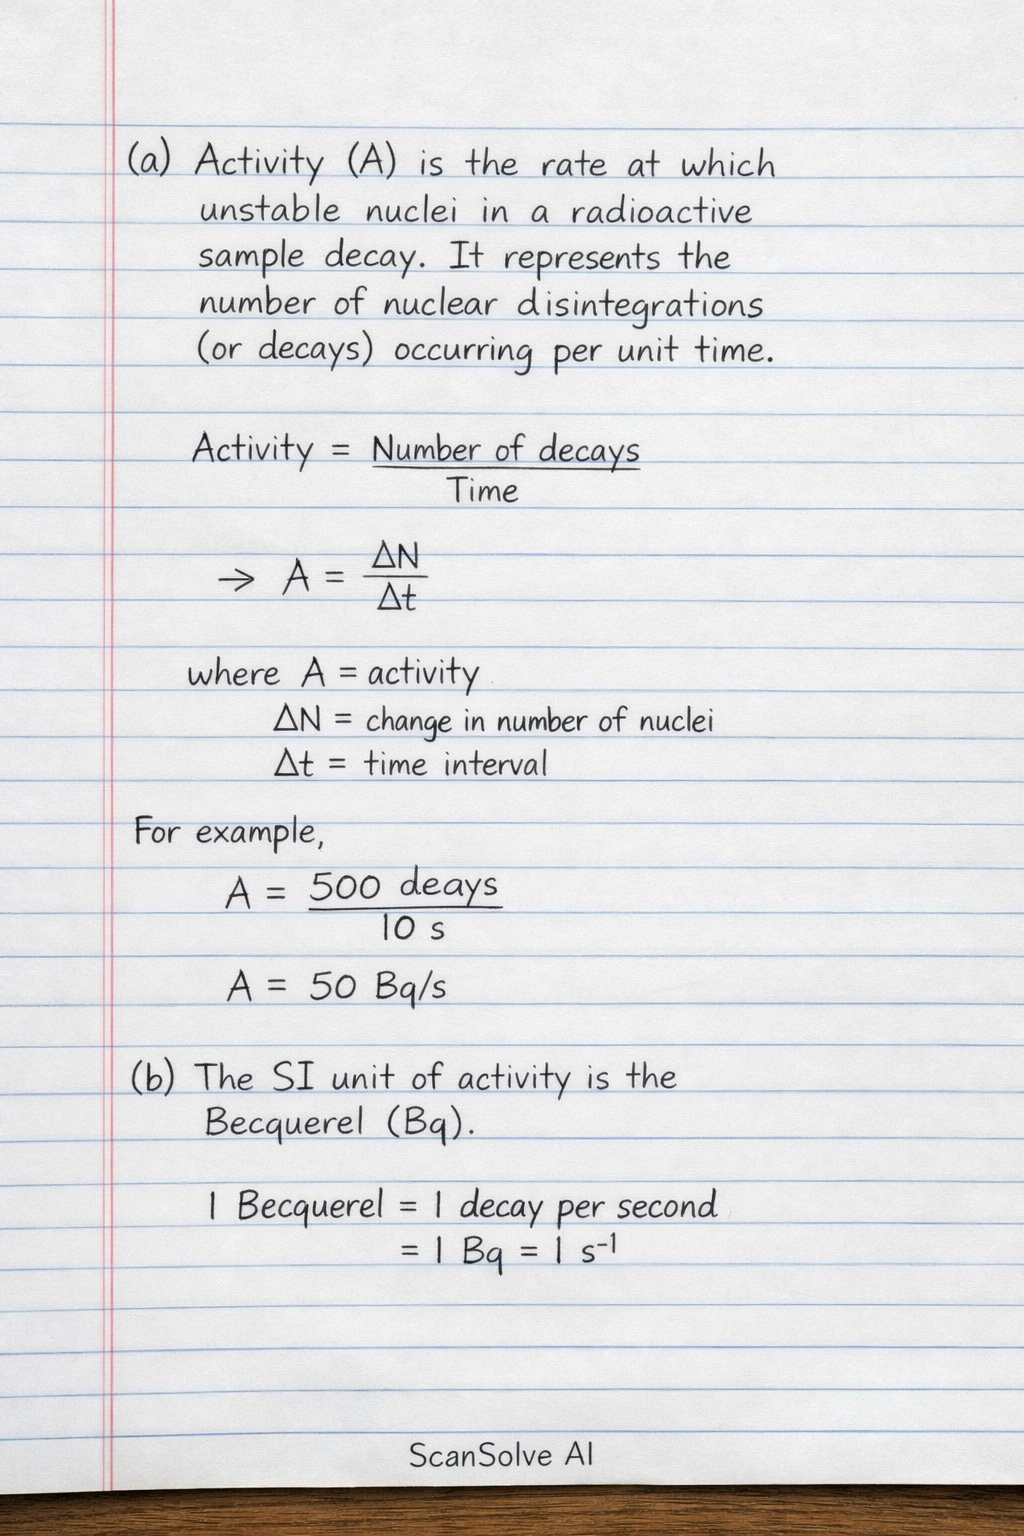 (a) Activity (A) is the rate at which
unstable nuclei in a radioactive
sample decay. It represents the
number of nuclear disintegrations
(or decays) occurring per unit time.
Activity = Number of decays
Time
→ A = ΔN
Δt
where A = activity
ΔN = change in number of nuclei
Δt = time interval
For example,
A = 500 deays
10 s
A = 50 Bq/s
(b) The SI unit of activity is the
Becquerel (Bq).
1 Becquerel = 1 decay per second
= 1 Bq = 1 s⁻¹
ScanSolve AI